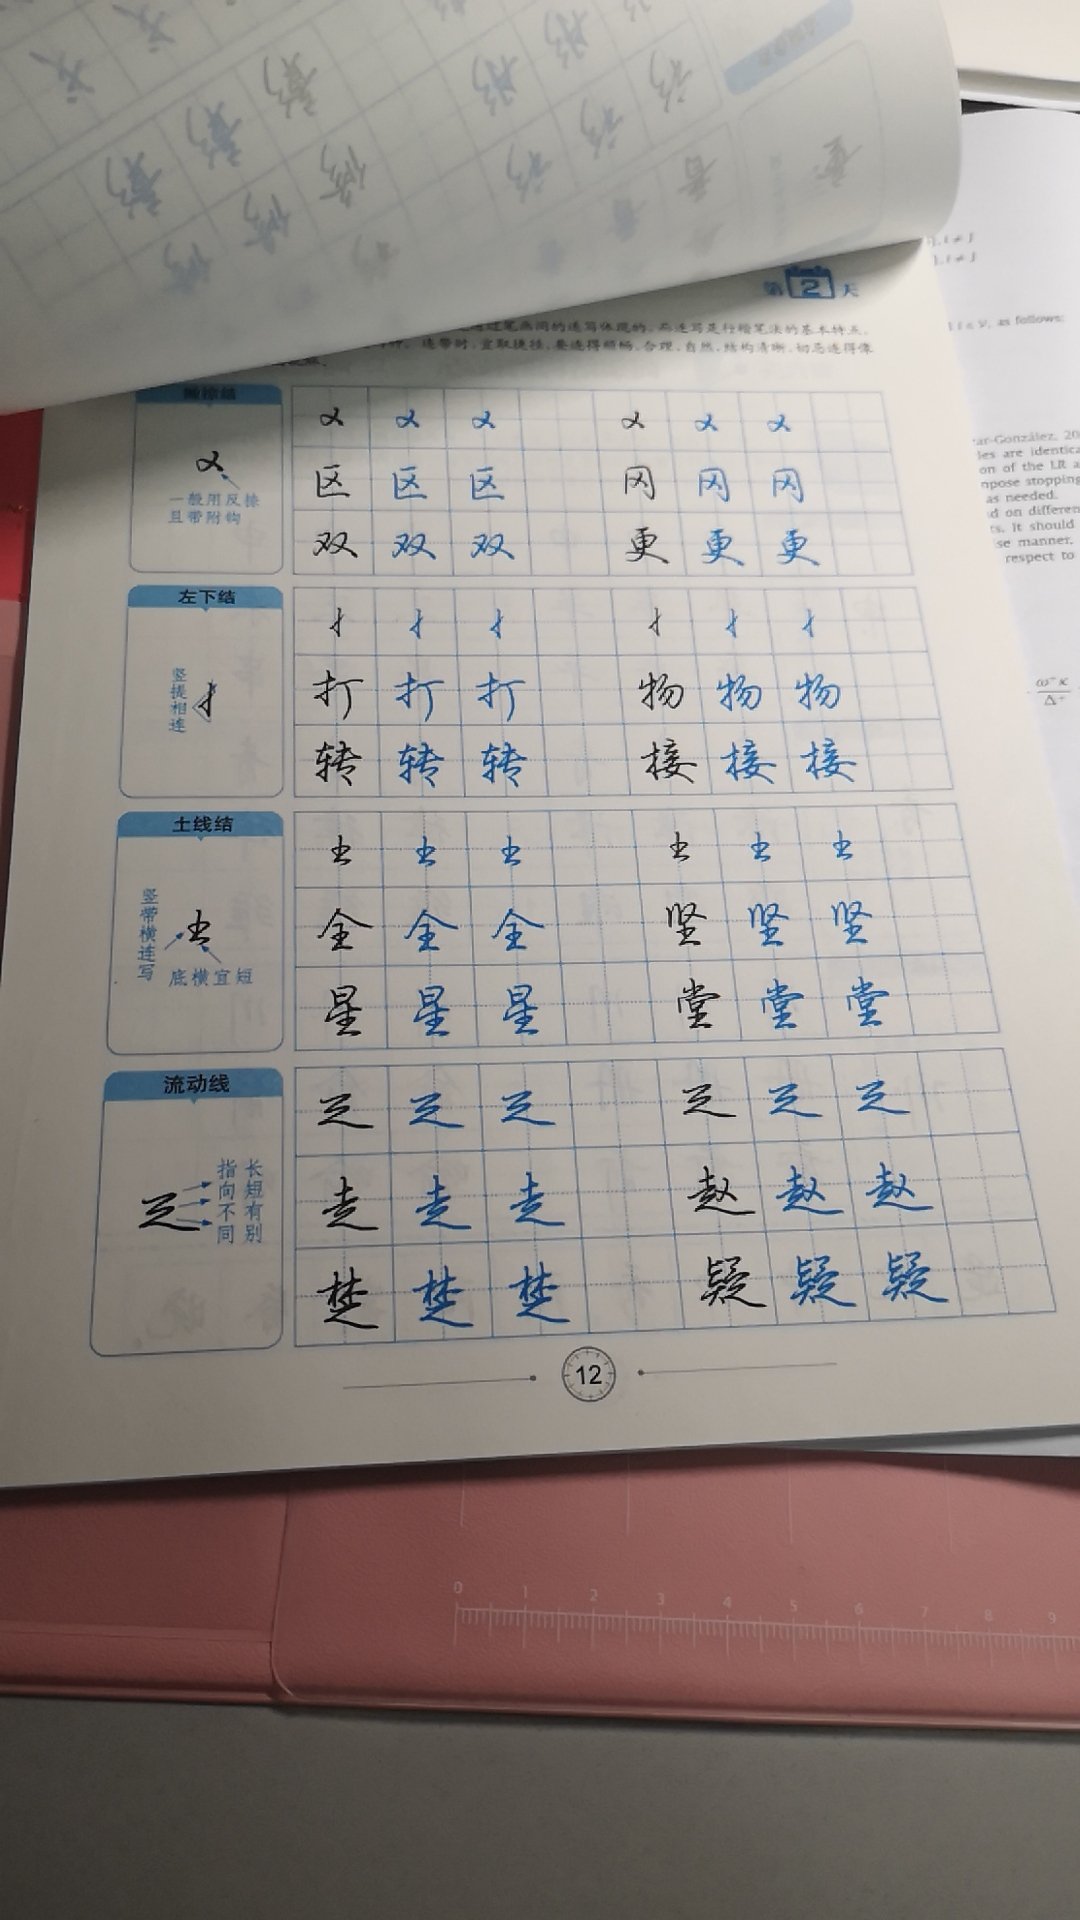 第2天
过笔画间的连写体现的,而连写是行楷笔法的基本特点。
连带时,宜取捷径,要连得顺畅、合理、自然,结构清晰,切忌连得像
撇捺结
一般用反捺
且带附钩
区 区 区 冈 冈 冈
双 双 双 更 更 更
左下结
竖提相连
打 打 打 物 物 物
转 转 转 接 接 接
土线结
竖带横连写
底横宜短
全 全 全 坚 坚 坚
星 星 星 堂 堂 堂
流动线
指向不同
长短有别
走 走 走 赵 赵 赵
楚 楚 楚 疑 疑 疑
12
as follows:
ar-González, 20
les are identica
on of the LR a
npose stopping
as needed.
d on differen
s. It should
se manner,
respect to
0 1 2 3 4 5 6 7 8 9